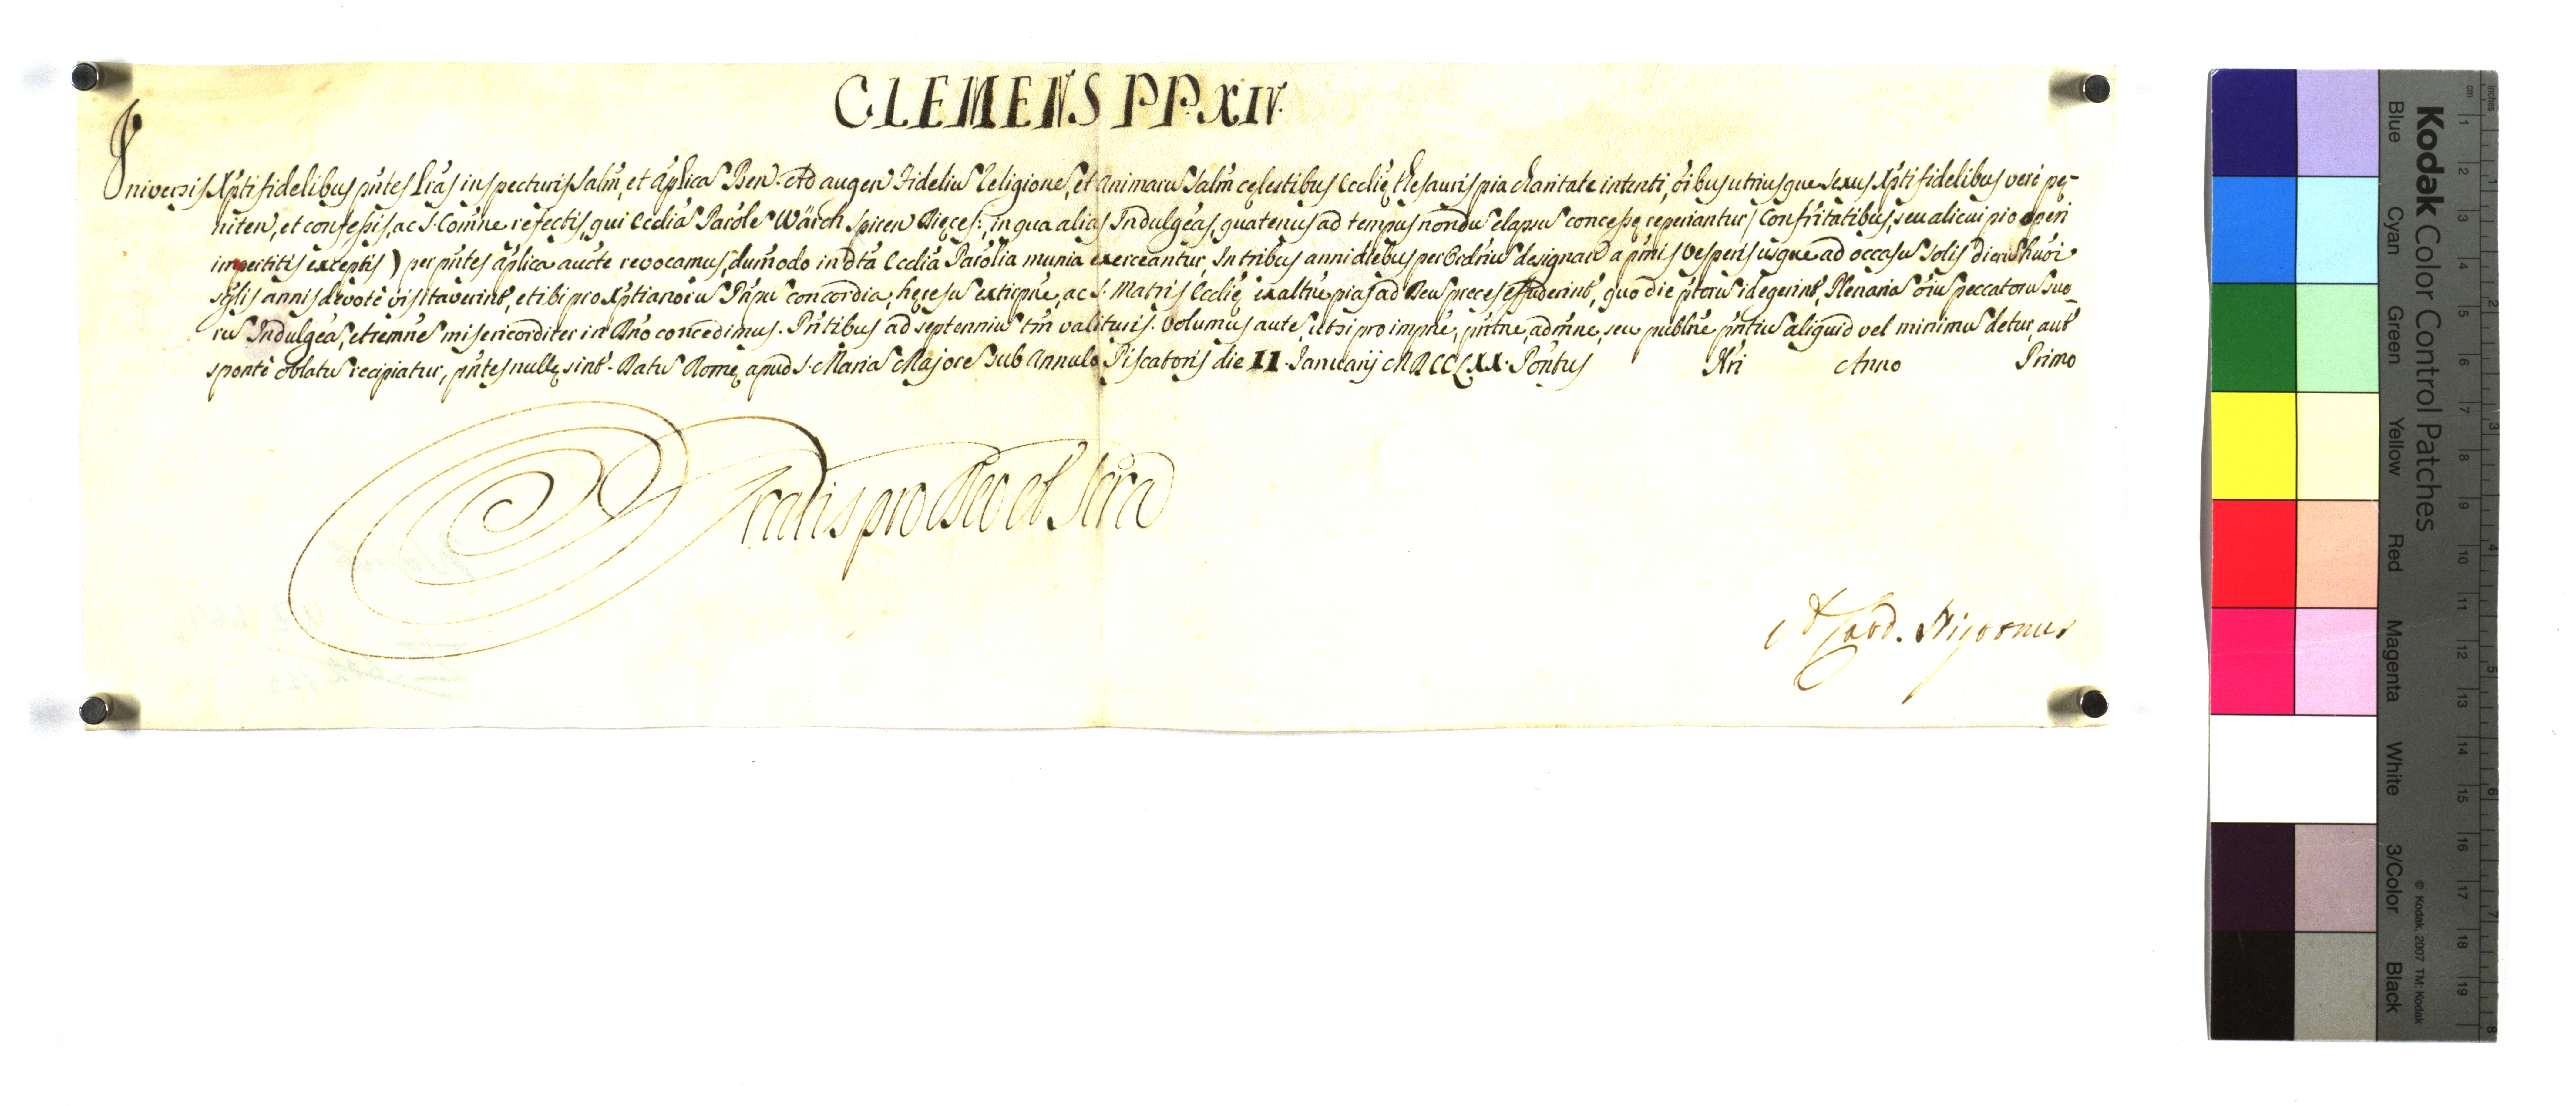 CLEMENS PP. XIV.
Universis Xpti fidelibus pñtes Lr̃as inspecturis Salm̃, et ap̃licã Ben. Ad augen Fideliũ Religionẽ, et Animarũ Salm̃ cęlestibus Ecclię thesauris pia charitate intenti, õibus utriusque sexus Xpti fidelibus verè pę-
niten, et confessis, ac S. Com̃ne refectis, qui Ecclĩã Parõlẽ Wärch Spiren Dięces:, in qua aliàs Indulgẽas, quatenus ad tempus nondũ elapsũ concessę reperiantur / Confr̃itatibus, seu alicui pio operi
impertitis exceptis ) per pñtes ap̃lica aucte revocamus, dum̃odo in dta Ecclĩa Parõlia munia exerceantur, In tribus anni diebus per Ordriũ designand a primis Vesperis usque ad occasũ Solis dierũ hũõi
sglis annis devotè visitaverint, et ibi pro Xptianorũ Pñpũ concordia, hęresũ extirpñe, ac S. Matris Ecclię exaltñe pias ad Deũ preces effuderint, quo die ptorũ id egerint, Plenariã õiũ peccatorũ suo-
rũ Indulgẽã, et remñẽ misericorditer in Dño concedimus. Pñtibus ad septenniũ tm̃ valituris. Volumus autẽ, ut si pro impñe, pñtñe, admñe, seu publñe pñtiũ aliquid vel minimũ detur, aut
spontè oblatũ recipiatur, pñtes nullę sint. Datũ Romę apud S. Mariã Majorẽ Sub Annulo Piscatoris die II Januarij MDCCLXX. Pontus Nri Anno Primo
Gratis pro Deo et Scra
A. Card. Nigronus
Kodak Color Control Patches
Blue Cyan Green Yellow Red Magenta White 3/Color Black
© Kodak, 2007 TM: Kodak
cm 1 2 3 4 5 6 7 8 9 10 11 12 13 14 15 16 17 18 19
Inches 1 2 3 4 5 6 7 8